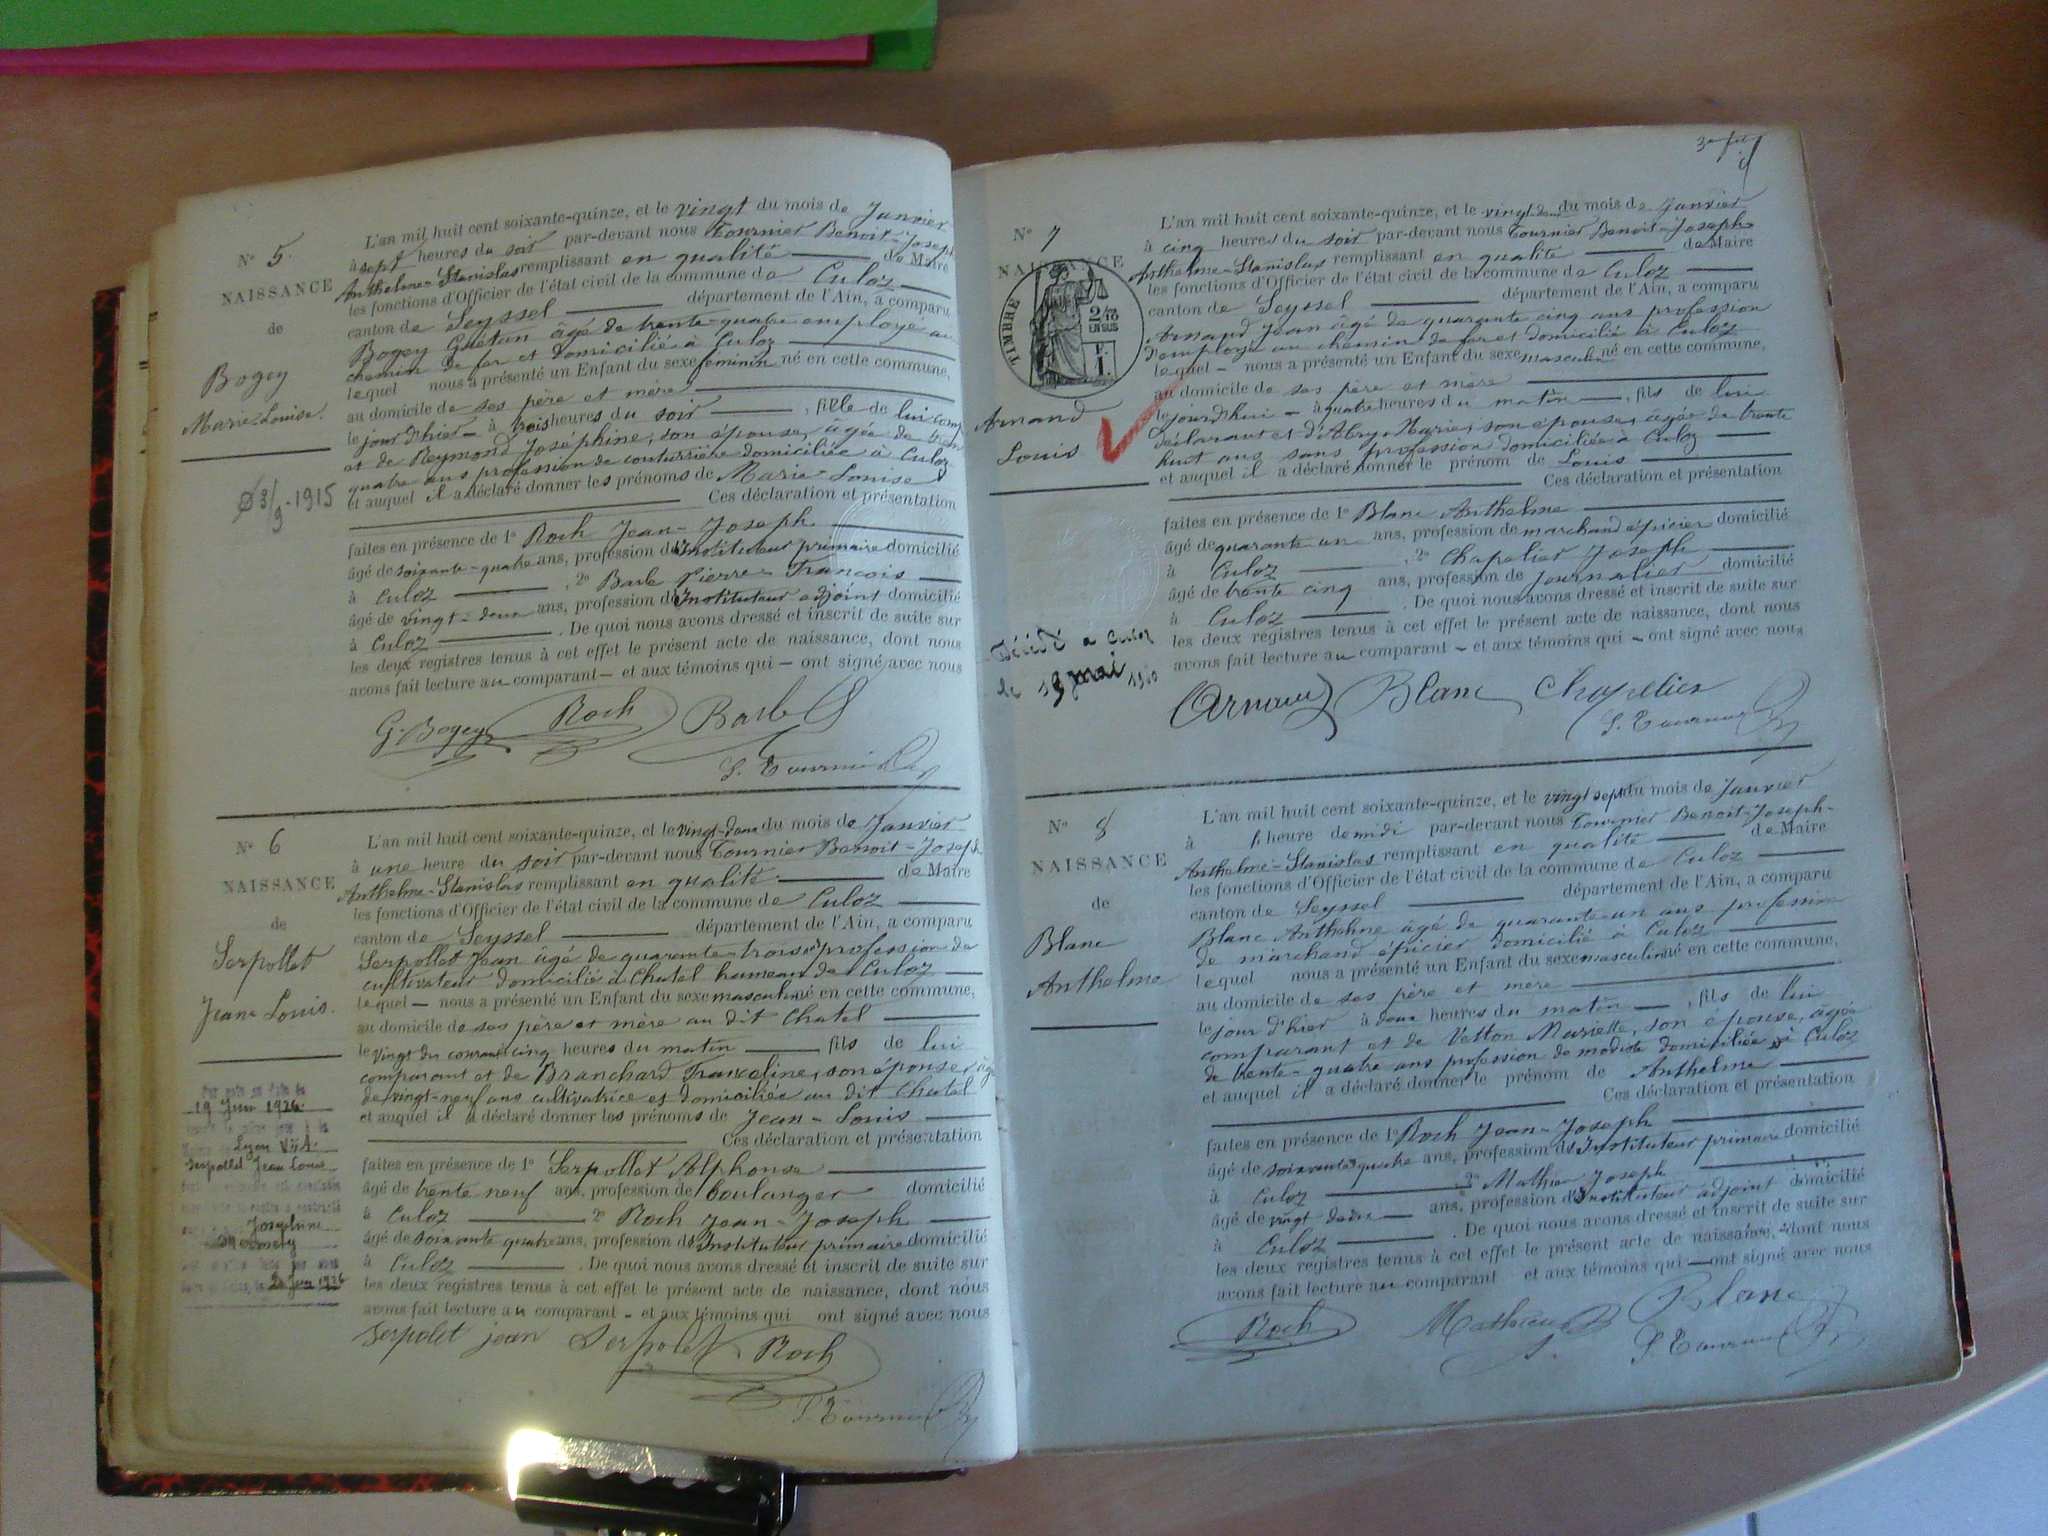 N° 5.
NAISSANCE
de
Bogey
Marie-Louise.
3/9-1915
L'an mil huit cent soixante-quinze, et le vingt du mois de Janvier
à sept heures du soir par-devant nous Tournier Benoit-Joseph
Anthelme-Stanislas remplissant en qualité de Maire
les fonctions d'Officier de l'état civil de la commune de Culoz
canton de Seyssel département de l'Ain, a comparu
Bogey Gaëtan âgé de trente-quatre employé au
chemin de fer et domicilié à Culoz
lequel nous a présenté un Enfant du sexe féminin né en cette commune,
au domicile de ses père et mère
le jour d'hier - à trois heures du soir, fille de lui comp
et de Reymond Joséphine, son épouse, âgée de tren
quatre ans profession de couturrière domiciliée à Culoz
et auquel il a déclaré donner les prénoms de Marie Louise
Ces déclaration et présentation
faites en présence de 1° Roch Jean-Joseph
âgé de soixante-quatre ans, profession d'Instituteur primaire domicilié
à Culoz, 2° Barbe Pierre-François
âgé de vingt-deux ans, profession d'Instituteur adjoint domicilié
à Culoz. De quoi nous avons dressé et inscrit de suite sur
les deux registres tenus à cet effet le présent acte de naissance, dont nous
avons fait lecture au comparant - et aux témoins qui - ont signé avec nous
G. Bogey Roch Barbe
S. Tournier
N° 6
NAISSANCE
de
Serpollet
Jean Louis.
19 Juin 1926
Lyon
Serpollet Jean Louis
Joséphine
1926
L'an mil huit cent soixante-quinze, et le vingt-deux du mois de Janvier
à une heure du soir par-devant nous Tournier Benoit-Joseph
Anthelme-Stanislas remplissant en qualité de Maire
les fonctions d'Officier de l'état civil de la commune de Culoz
canton de Seyssel département de l'Ain, a comparu
Serpollet Jean âgé de quarante-trois profession de
cultivateur domicilié à Chatel hameau de Culoz
lequel - nous a présenté un Enfant du sexe masculin né en cette commune,
au domicile de ses père et mère au dit Chatel
le vingt du courant cinq heures du matin fils de lui
comparant et de Branchard Franceline, son épouse, âg
de vingt-neuf ans cultivatrice et domiciliée au dit Chatel
et auquel il a déclaré donner les prénoms de Jean-Louis
Ces déclaration et présentation
faites en présence de 1° Serpollet Alphonse
âgé de trente neuf ans, profession de boulanger domicilié
à Culoz 2° Roch Jean-Joseph
âgé de soixante quatre ans, profession d'Instituteur primaire domicilié
à Culoz. De quoi nous avons dressé et inscrit de suite sur
les deux registres tenus à cet effet le présent acte de naissance, dont nous
avons fait lecture au comparant - et aux témoins qui ont signé avec nous
Serpolet jean Serpolet Roch
S. Tournier
N° 7
NAISSANCE
TIMBRE
2/10 EN SUS
F. 1.
Arnand
Louis
Décédé a Culoz
le mai
L'an mil huit cent soixante-quinze, et le vingt-deux du mois de Janvier
à cinq heures du soir par-devant nous Tournier Benoit-Joseph
Anthelme-Stanislas remplissant en qualité de Maire
les fonctions d'Officier de l'état civil de la commune de Culoz
canton de Seyssel département de l'Ain, a comparu
Arnand Jean âgé de quarante cinq ans profession
d'employé au chemin de fer et domicilié à Culoz
lequel - nous a présenté un Enfant du sexe masculin né en cette commune,
au domicile de ses père et mère
le jourd'hui - à quatre heures du matin, fils de lui
déclarant et d'Abry Marie, son épouse, âgée de trente
huit ans sans profession domiciliée à Culoz
et auquel il a déclaré donner le prénom de Louis
Ces déclaration et présentation
faites en présence de 1° Blanc Anthelme
âgé de quarante un ans, profession de marchand épicier domicilié
à Culoz, 2° Chapelier Joseph
âgé de trente cinq ans, profession de Journalier domicilié
à Culoz. De quoi nous avons dressé et inscrit de suite sur
les deux registres tenus à cet effet le présent acte de naissance, dont nous
avons fait lecture au comparant - et aux témoins qui - ont signé avec nous
Arnaud Blanc Chapelier
S. Tournier
N° 8
NAISSANCE
de
Blanc
Anthelme
L'an mil huit cent soixante-quinze, et le vingt sept du mois de Janvier
à heure de midi par-devant nous Tournier Benoit-Joseph-
Anthelme-Stanislas remplissant en qualité de Maire
les fonctions d'Officier de l'état civil de la commune de Culoz
canton de Seyssel département de l'Ain, a comparu
Blanc Anthelme âgé de quarante-un ans profession
de marchand épicier domicilié à Culoz
lequel nous a présenté un Enfant du sexe masculin né en cette commune,
au domicile de ses père et mère
le jour d'hier à deux heures du matin, fils de lui
comparant et de Vetton Mariette, son épouse, âgée
de trente-quatre ans profession de modiste domiciliée à Culoz
et auquel il a déclaré donner le prénom de Anthelme
Ces déclaration et présentation
faites en présence de 1° Roch Jean-Joseph
âgé de soixante quatre ans, profession d'Instituteur primaire domicilié
à Culoz 2° Mathieu Joseph
âgé de vingt deux ans, profession d'Instituteur adjoint domicilié
à Culoz. De quoi nous avons dressé et inscrit de suite sur
les deux registres tenus à cet effet le présent acte de naissance, dont nous
avons fait lecture au comparant et aux témoins qui - ont signé avec nous
Roch Mathieu Blanc
S. Tournier